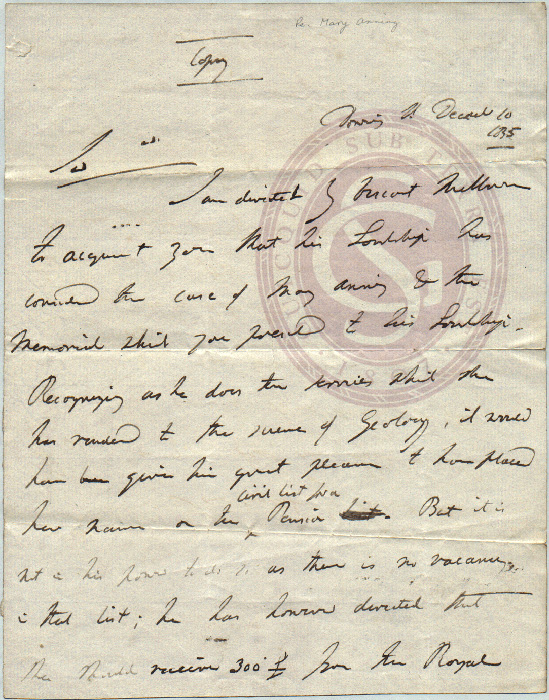 Re. Mary Anning
Copy
Downing St Decembr 10
1835
Sir
I am directed by Viscount Melbourne
to acquaint you that his Lordship has
considered the case of Mary Anning & the
Memorial which you presented to his Lordship.
Recognizing as he does the services which she
has rendered to the science of Geology, it would
have been given him great pleasure to have placed
her name on the Pension list. But it is
civil list for a
not in his power to do so as there is no vacancy
in that list; he has however directed that
She should receive 300 £ from the Royal
SUB